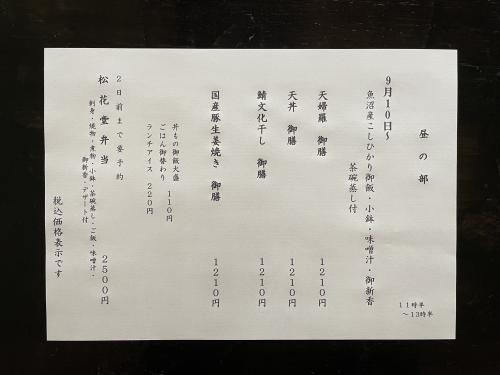 昼の部
11時半
～13時半
9月10日～
魚沼産こしひかり御飯・小鉢・味噌汁・御新香
茶碗蒸し付
天婦羅 御膳 1210円
天丼 御膳 1210円
鯖文化干し 御膳 1210円
国産豚生姜焼き 御膳 1210円
丼もの御飯大盛 110円
ごはん御替わり
ランチアイス 220円
2日前まで要予約
松花堂弁当 2500円
刺身・焼物・煮物・小鉢・茶碗蒸し・ご飯・味噌汁・
御新香・デザート付
税込価格表示です